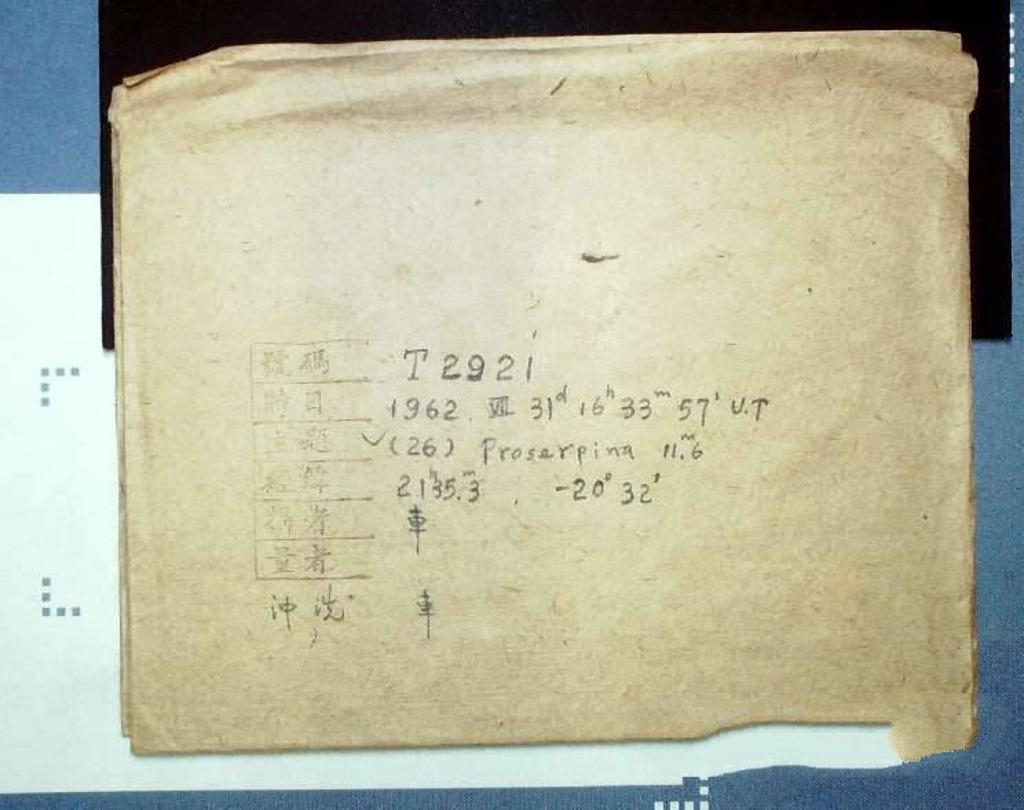 號碼 T 2921
時日 1962. Ⅶ 31ᵈ 16ʰ 33ᵐ 57ˢ U.T
主題 ✓(26) Proserpina 11.ᵐ6
21ʰ35.ᵐ3 , -20° 32'
者 車
量者
沖洗 車